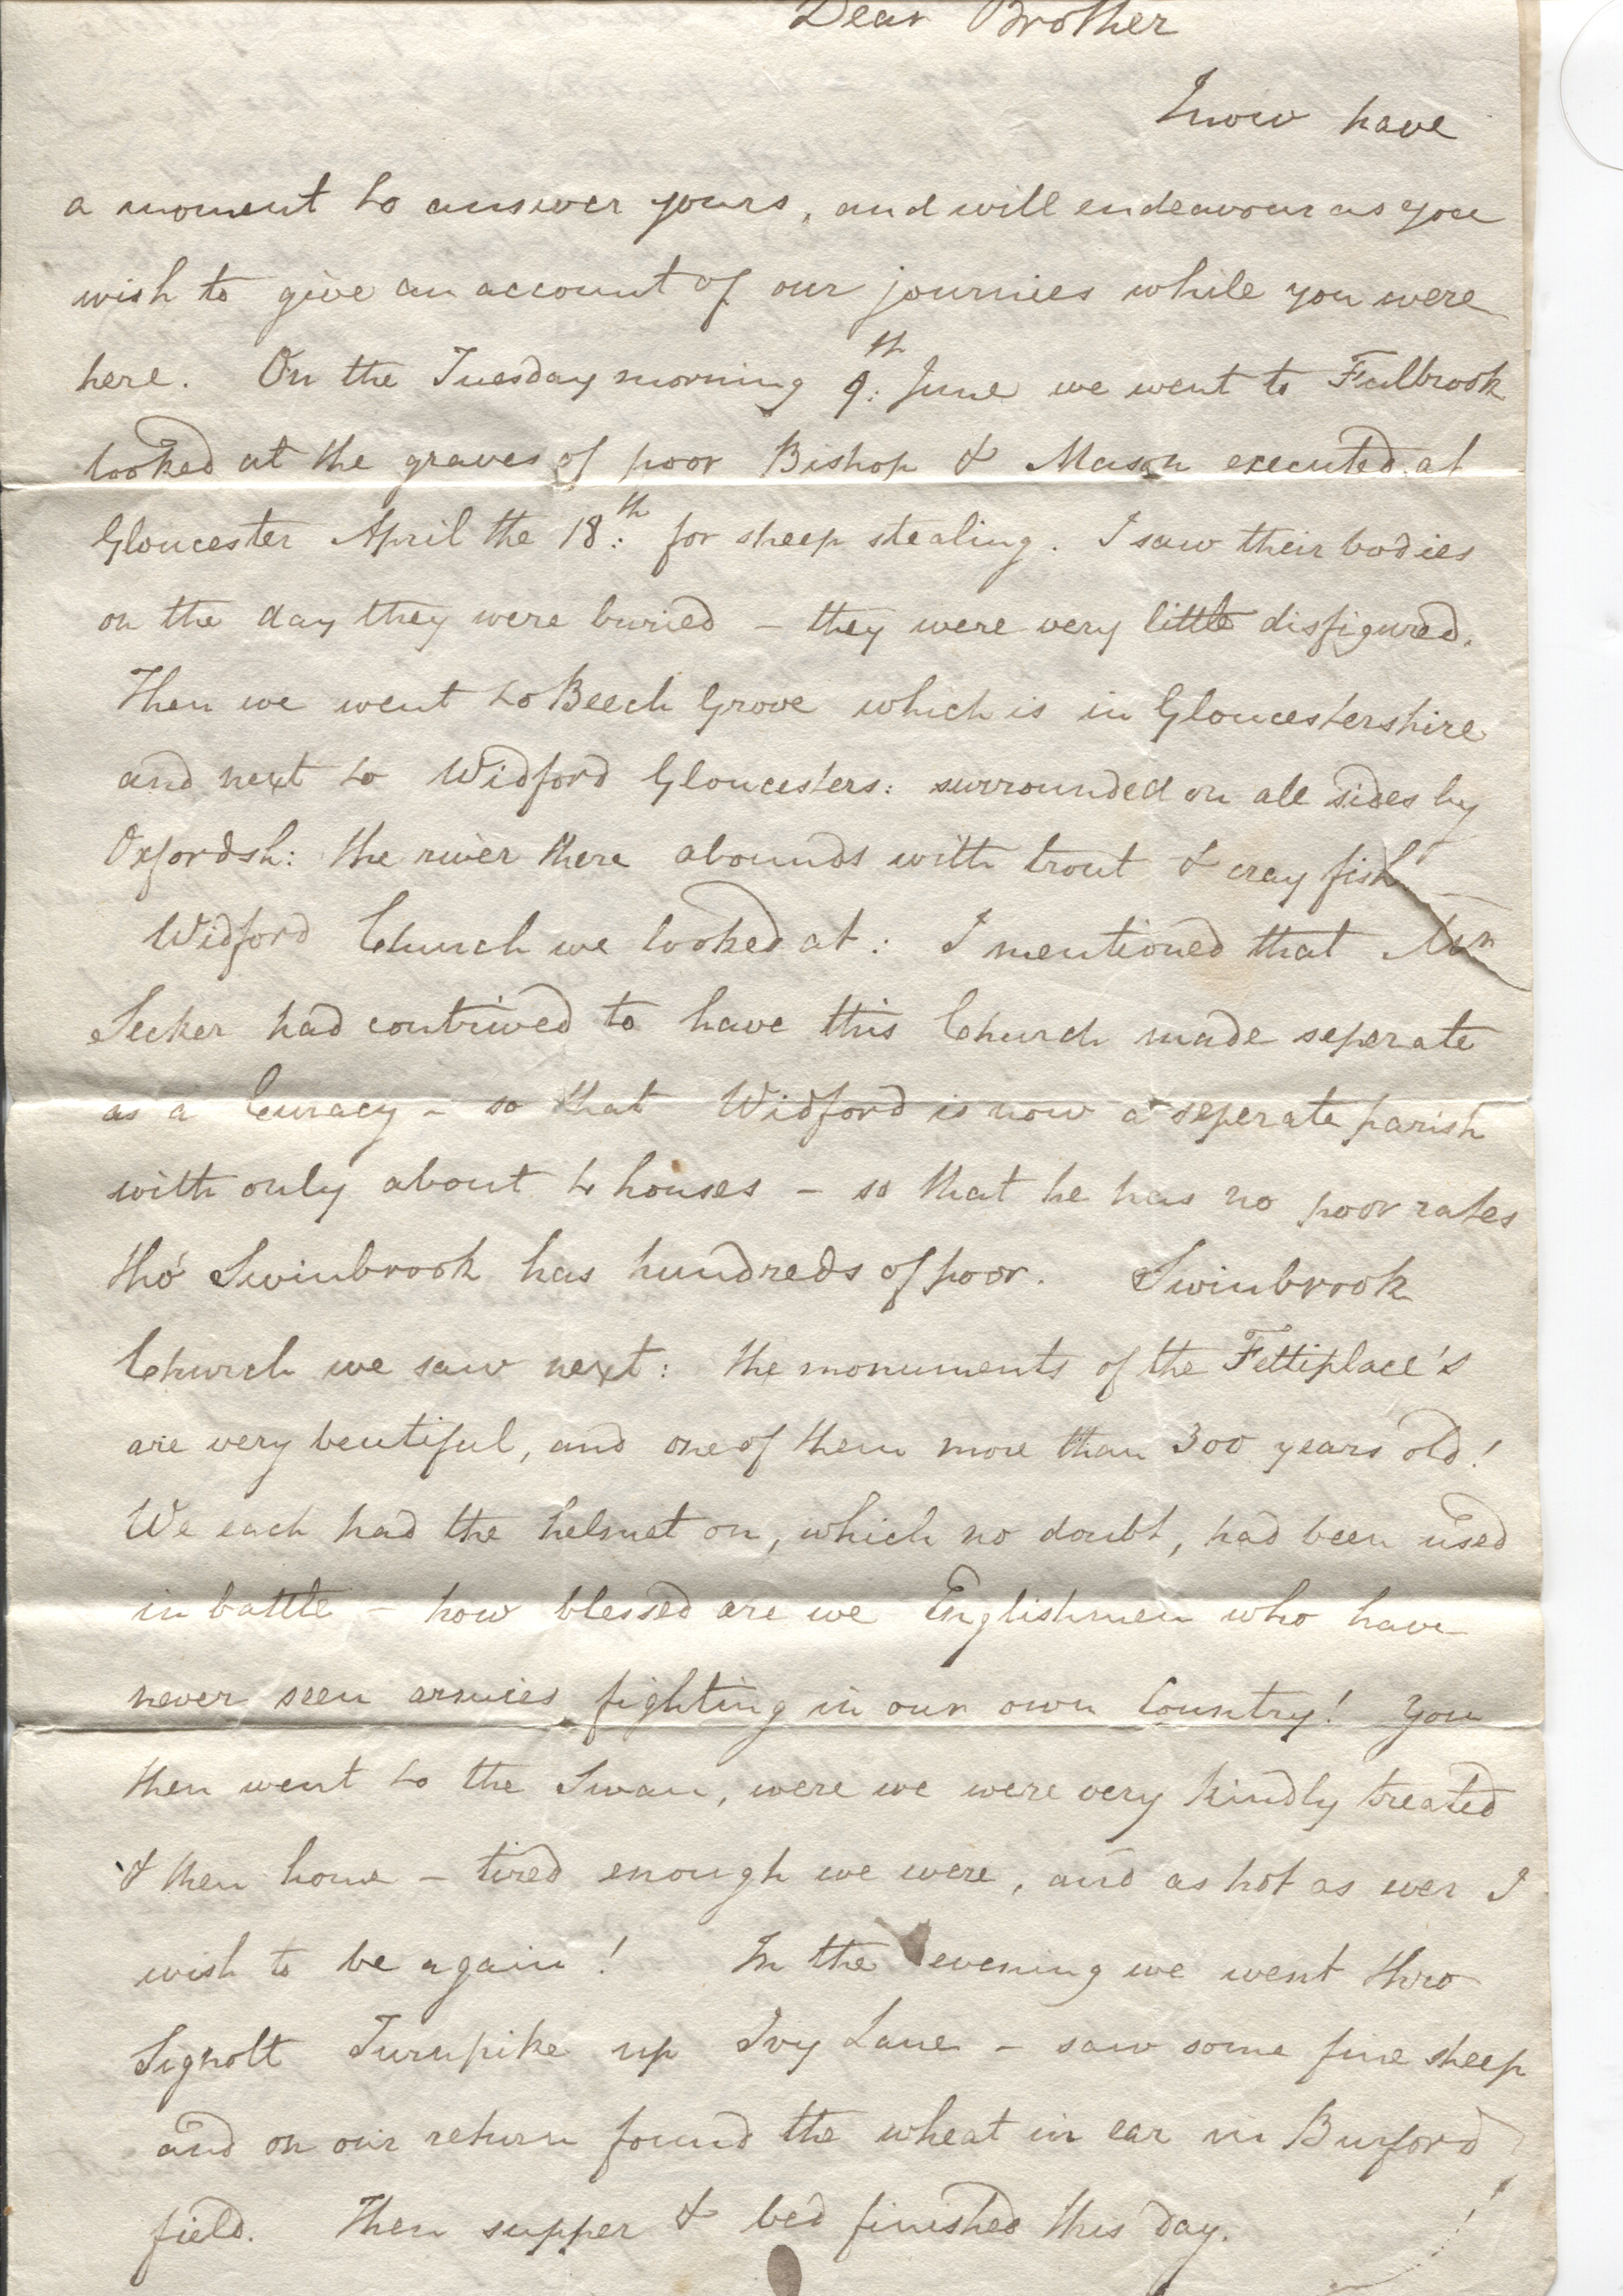 Dear Brother
I now have
a moment to answer yours, and will endeavour as you
wish to give an account of our journies while you were
here. On the Tuesday morning 9:th June we went to Fulbrook
looked at the graves of poor Bishop & Mason executed at
Gloucester April the 18:th for sheep stealing. I saw their bodies
on the day they were buried – they were very little disfigured.
Then we went to Beech Grove which is in Gloucestershire
and next to Widford Gloucesters: surrounded on all sides by
Oxfordsh: the river there abounds with trout & cray fish –
Widford Church we looked at: I mentioned that
Secker had contrived to have this Church made seperate
as a Curacy – so that Widford is now a seperate parish
with only about 4 houses – so that he has no poor rates
tho' Swinbrook has hundreds of poor. Swinbrook
Church we saw next: the monuments of the Fettiplace's
are very beutiful, and one of them more than 300 years old!
We each had the helmet on, which no doubt, had been used
in battle – how blessed are we Englishmen who have
never seen armies fighting in our own Country! You
then went to the Swan, were we were very kindly treated
& then home – tired enough we were, and as hot as ever I
wish to be again! In the evening we went thro
Signott Turnpike up Ivy Lane – saw some fine sheep
and on our return found the wheat in ear in Burford
field. Then supper & bed finished this day.